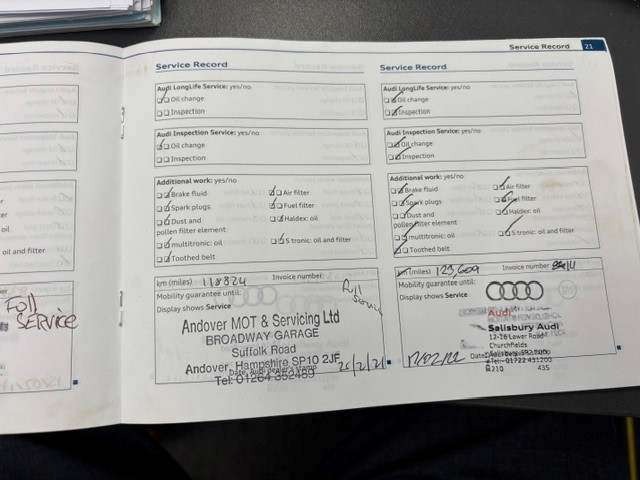 Service Record 21
Full
SERVICE
Service Record
Audi LongLife Service: yes/no
Oil change
Inspection
Audi Inspection Service: yes/no
Oil change
Inspection
Additional work: yes/no
Brake fluid
Air filter
Spark plugs
Fuel filter
Dust and
pollen filter element
Haldex: oil
multitronic: oil
S tronic: oil and filter
Toothed belt
km (miles) 118824 Invoice number:
Mobility guarantee until:
Display shows Service
Full
Service
Andover MOT & Servicing Ltd
BROADWAY GARAGE
Suffolk Road
Andover, Hampshire SP10 2JF
Tel: 01264 352489
Service Record
Audi LongLife Service: yes/no
Oil change
Inspection
Audi Inspection Service: yes/no
Oil change
Inspection
Additional work: yes/no
Brake fluid
Air filter
Spark plugs
Fuel filter
Dust and
pollen filter element
Haldex: oil
multitronic: oil
S tronic: oil and filter
Toothed belt
km (miles) 123,609 Invoice number
Mobility guarantee until:
Display shows Service
Audi
Salisbury Audi
12-16 Lower Road
Churchfields
Tel: 01722 431200
210 435
17/02/22